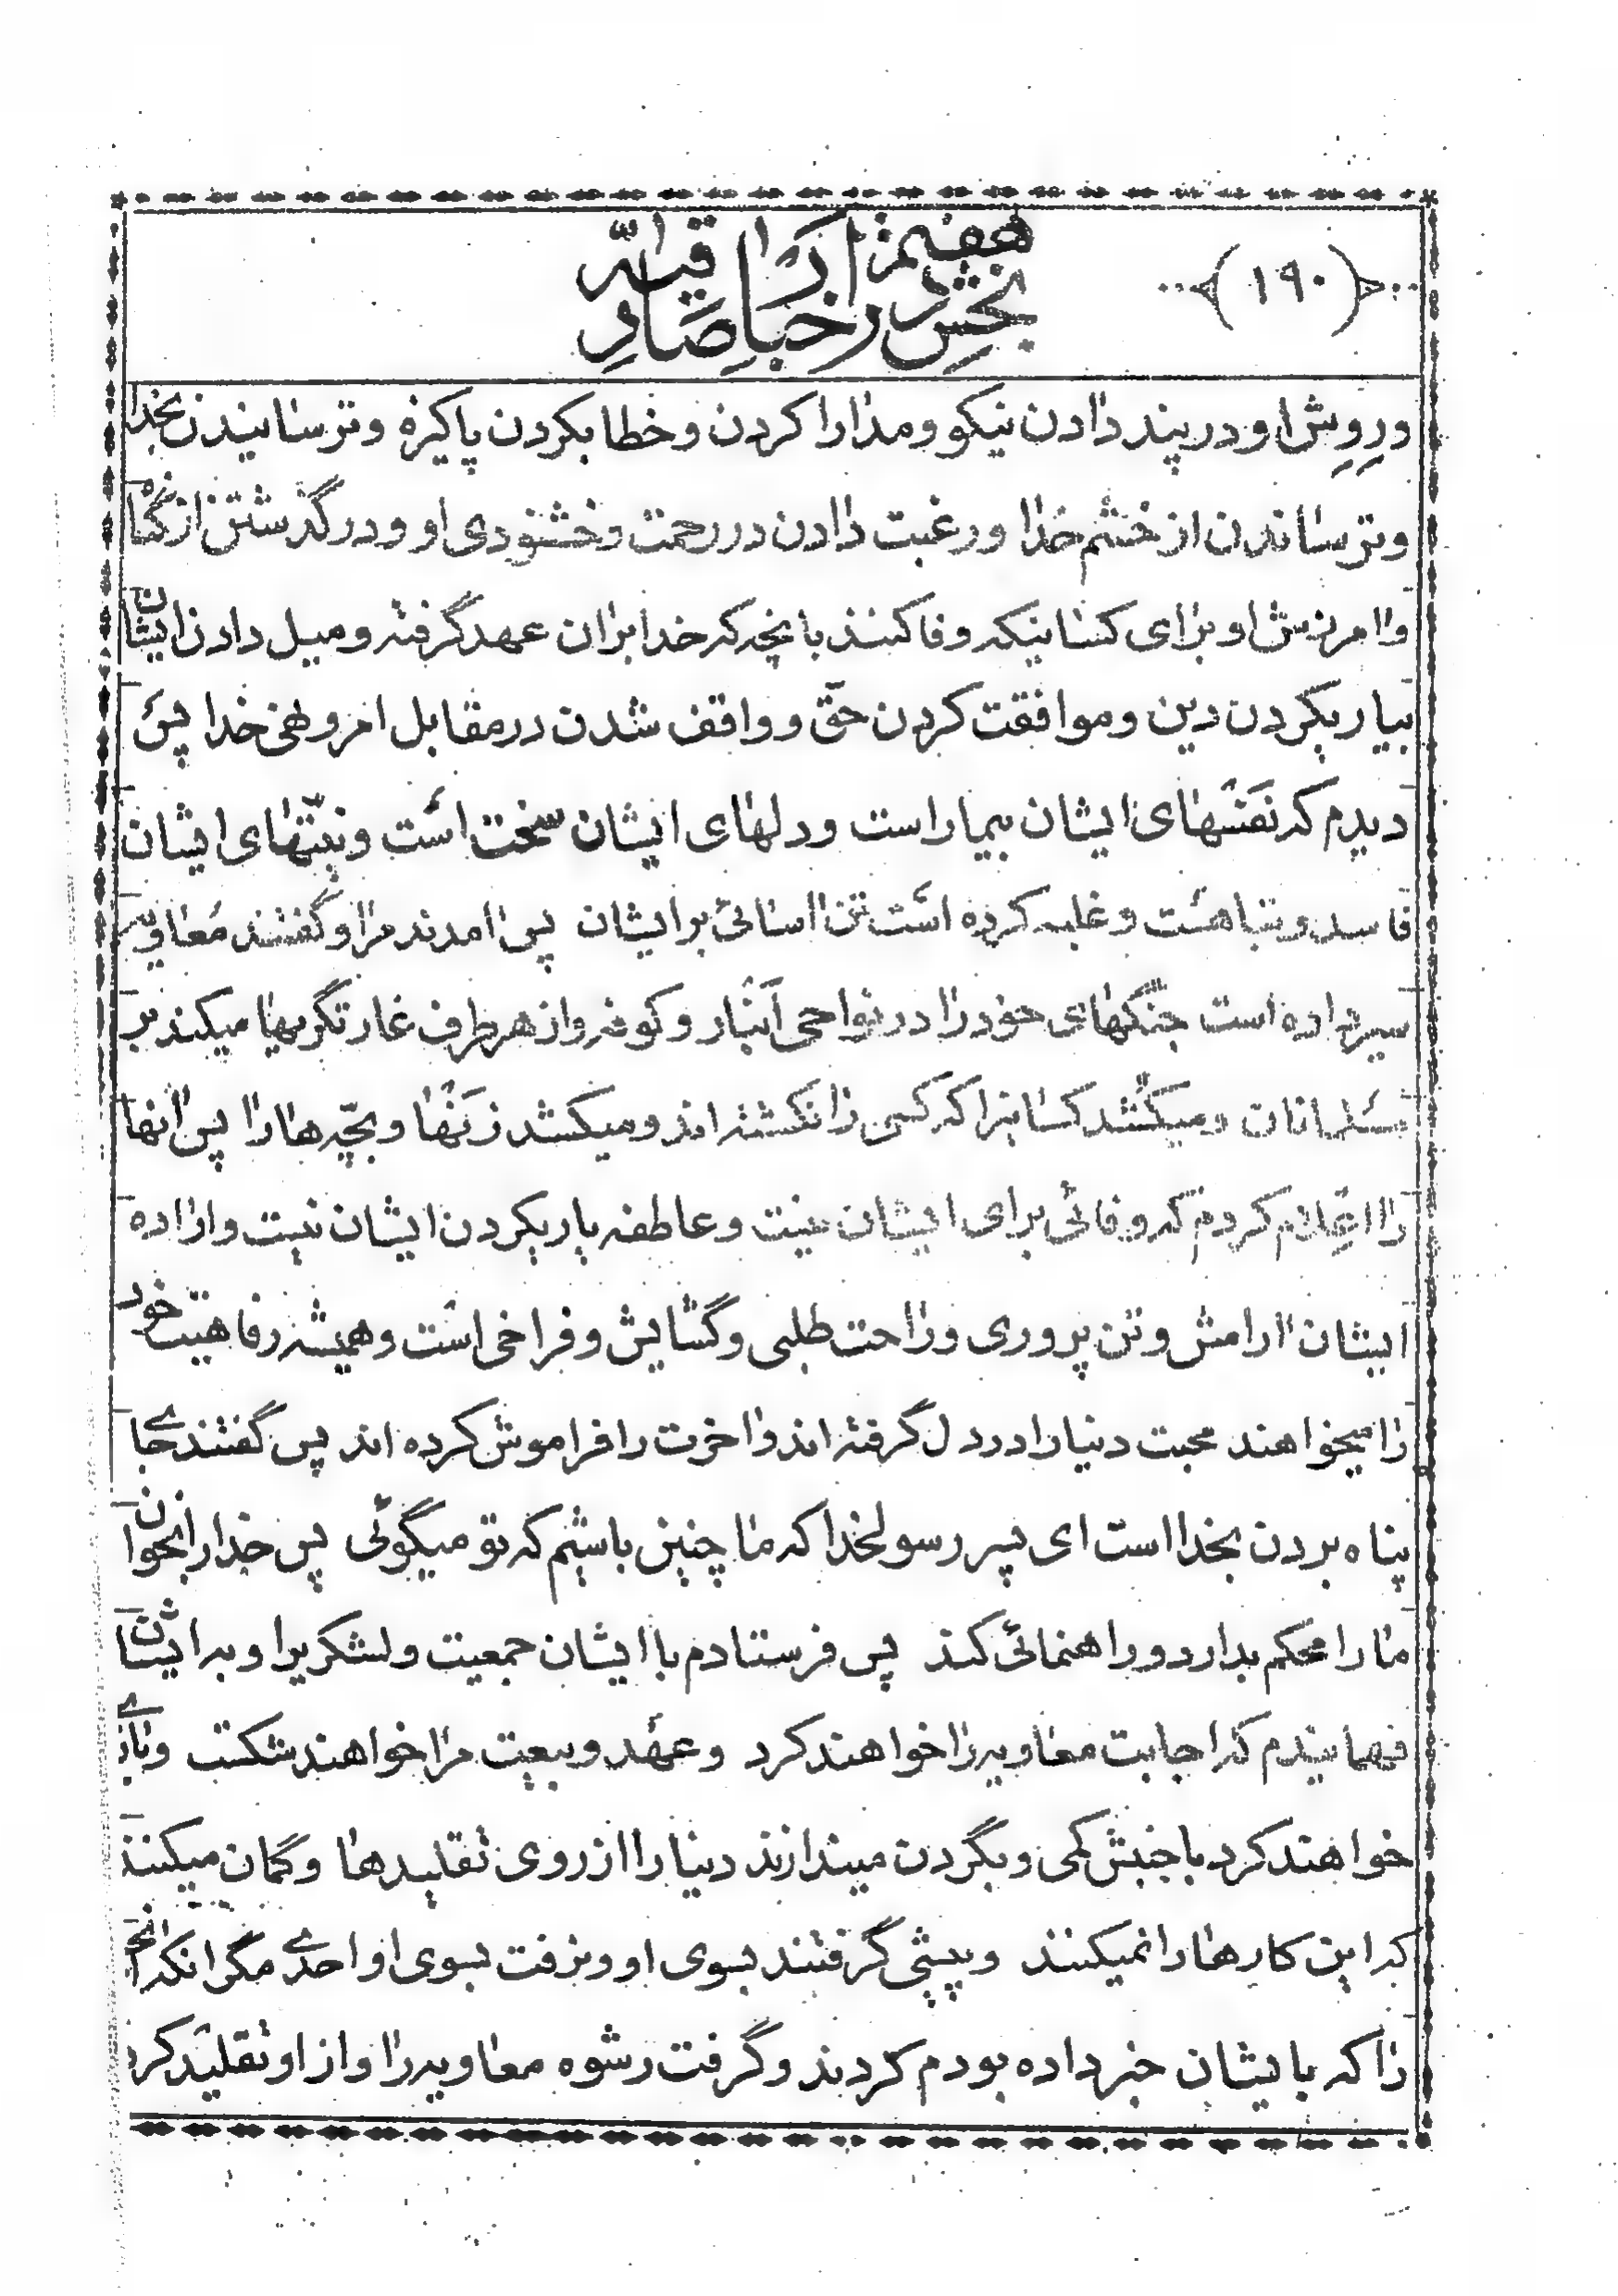 (۱۹۰)
بخش هفتم در اخبار صادقیه
و روش او در پند دادن نیکو و مدارا کردن و خطا بکردن پاکیزه و ترسانیدن بخدا
و ترساندن از خشم خدا و رغبت دادن در رحمت و خشنودی او و درگذشتن از گناه
و امرزش او برای کسانیکه وفا کنند بانچه که خدا بران عهد گرفته و میل دادن ایشان
بیاریکردن دین و موافقت کردن حق و واقف شدن در مقابل امر و نهی خدا پس
دیدم که نفسهای ایشان بیمار است و دلهای ایشان سخت است و نیتهای ایشان
فاسد و تباهست و غلبه کرده است تن اسانی بر ایشان پس امدند مرا و گفتند معاویه
سیر داده است جنگهای خود را در نواحی انبار و کوفه و از هر طرف غارتگریها میکند بر
مسلمانان و میکشد کسانیرا که کسی را نکشته اند و میکشد زنها و بچه ها را پس انها
را اعلام کردم که وفائی برای ایشان نیست و عاطفه یاریکردن ایشان نیست و اراده
ایشان ارامش و تن پروری و راحت طلبی و گشایش و فراخی است و همیشه رفاهیت خود
را میخواهند محبت دنیا را در دل گرفته اند و اخرت را فراموش کرده اند پس گفتند جای
پناه بردن بخدا است ای پسر رسولخدا که ما چنین باشیم که تو میگوئی پس خدا را بخوان
ما را محکم بدارد و راهنمائی کند پس فرستادم با ایشان جمعیت و لشکریرا و به ایشان
فهمانیدم که اجابت معاویه را خواهند کرد و عهد و بیعت مرا خواهند شکست و
خواهند کرد با جنبش کمی و بگردن میندازند دنیا را از روی تقلیدها و گمان میکنند
که این کارها را نمیکنند و پیشی گرفتند بسوی او و نرفت بسوی او احدی مگر انکه انچه
را که بایشان خبر داده بودم کردند و گرفت رشوه معاویه را و از او تقلید کرد